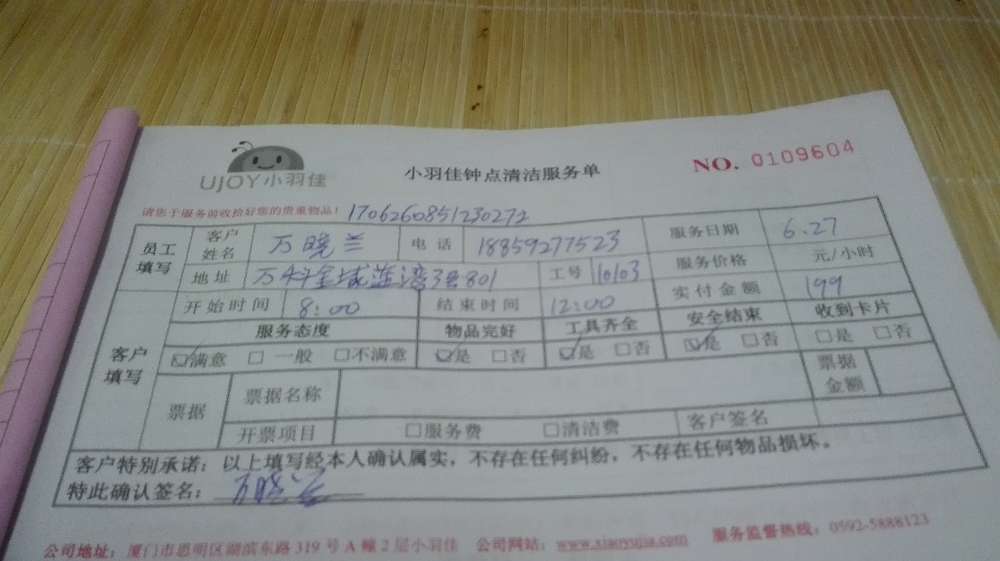 UJOY小羽佳
小羽佳钟点清洁服务单
NO. 0109604
请您于服务前收拾好您的贵重物品! 1706260851230272
员工填写 客户姓名 万晓兰 电话 18859277523 服务日期 6.27
地址 万科金域蓝湾3#801 工号 10103 服务价格 元/小时
开始时间 8:00 结束时间 12:00 实付金额 199
客户填写 服务态度 物品完好 工具齐全 安全结束 收到卡片
☑满意 □一般 □不满意 ☑是 □否 ☑是 □否 ☑是 □否 □是 □否
票据 票据名称 票据金额
开票项目 □服务费 □清洁费 客户签名
客户特别承诺:以上填写经本人确认属实,不存在任何纠纷,不存在任何物品损坏。
特此确认签名: 万晓兰
公司地址:厦门市思明区湖滨东路319号A幢2层小羽佳 公司网站:www.xiaoyujia.com 服务监督热线:0592-5888123